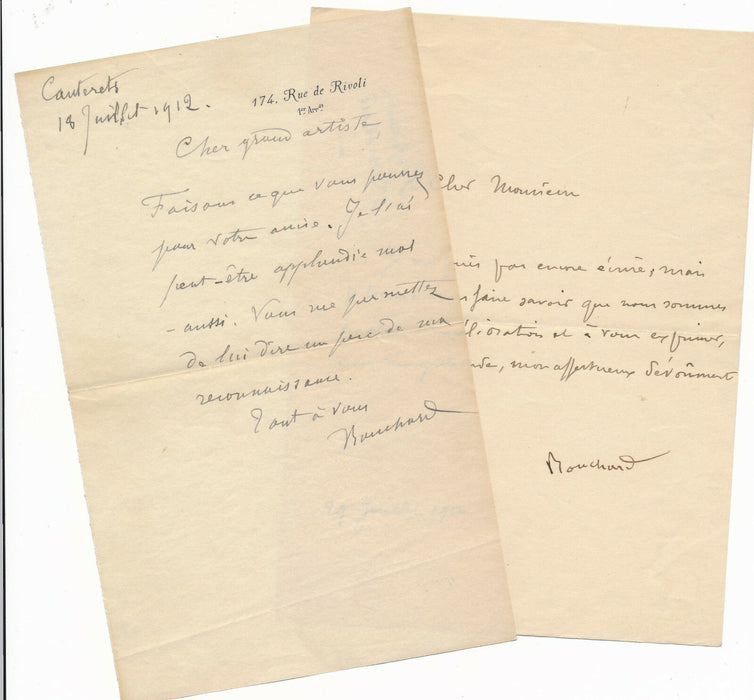 Cauterets
18 Juillet 1912.
174, Rue de Rivoli
1er Arrt
Cher grand artiste,
Faisons ce que vous pourrez
pour votre amie. Je l'ai
peut-être applaudie moi
-aussi. Vous me permettez
de lui dire un peu de ma
reconnaissance.
Tout à vous
Bouchard
Cher Monsieur
pas encore écrire, mais
faire savoir que nous sommes
et à vous exprimer,
mon affectueux dévoûment
Bouchard